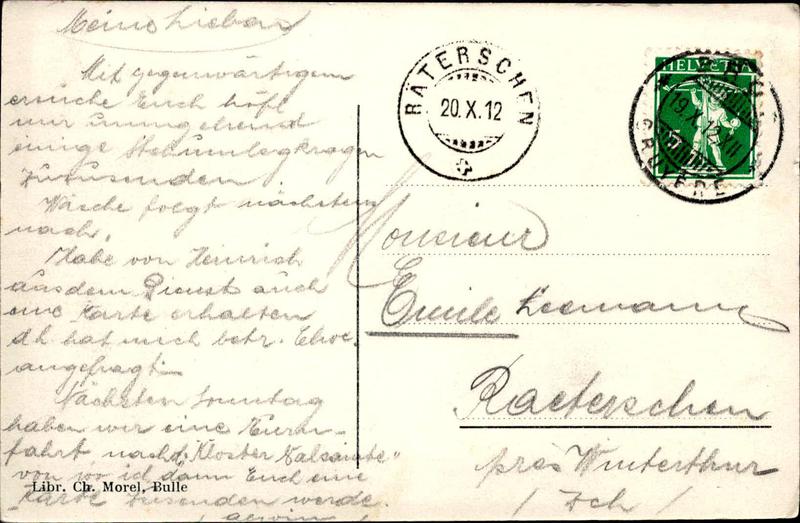 Meine Lieben
Mit gegenwärtigem
ersuche Euch höfl.
mir umgehend
einige Stehumlegkragen
zuzusenden.
Wäsche folgt nächstens
nach.
Habe von Heinrich
aus dem Dienst auch
eine Karte erhalten
dh. hat mich betr.
angefragt.
Nächsten Sonntag
haben wir eine Turn-
fahrt nach "Kloster Valsainte"
von wo ich dann Euch eine
Karte zusenden werde.
Libr. Ch. Morel, Bulle
RÄTERSCHEN
20.X.12
HELVETIA
5
19.X.12
GRUYÈRE
Monsieur
Emile Leemann
Raeterschen
près Winterthur
/ Zch /